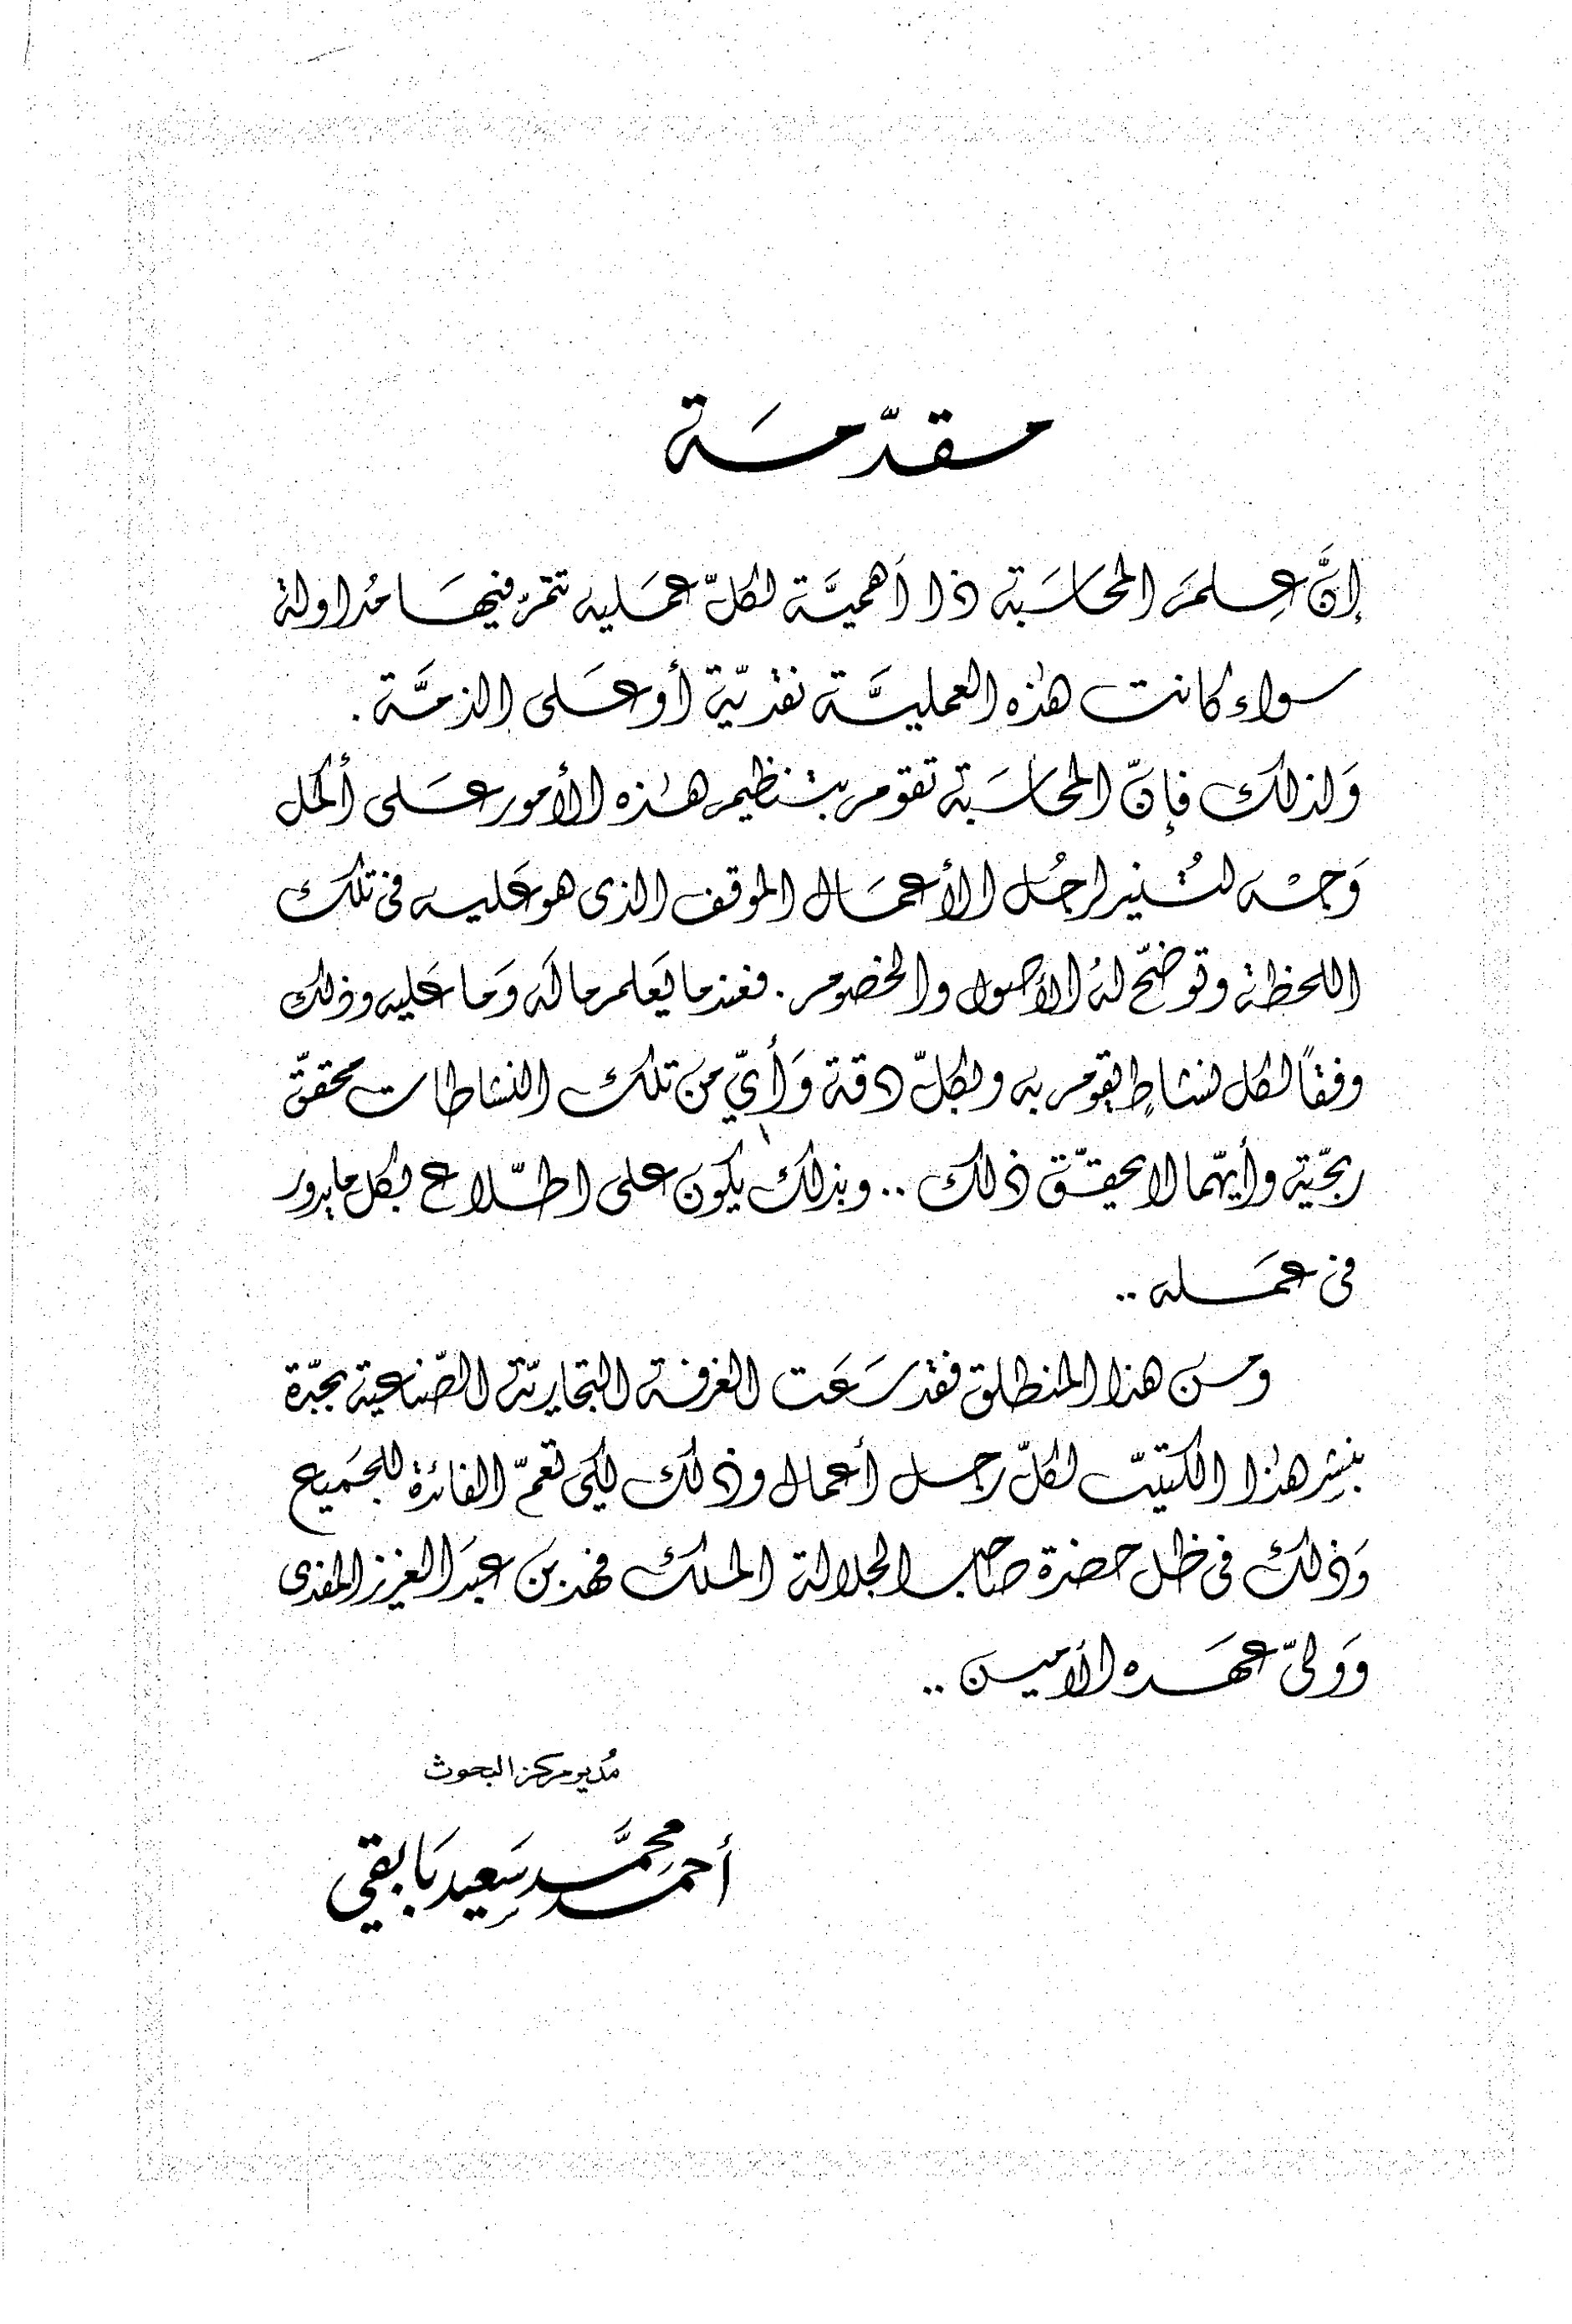 مقدّمَة
إنَّ عِلمَ المحاسَبة ذا أهميَّة لكلّ عمَليه تتمّ فيهَا مُداولة
سواء كانت هذه العمليَّة نقديّة أو عَلى الذمَّة .
وَلذلك فإنّ المحاسَبة تقوم بتنظيم هذه الأمور عَلى أكمل
وَجْه لتُنير لرجُل الأعمَال الموقف الذى هو عَليه فى تلك
اللحظة وتوضّح لهُ الأصول والخصوم . فعندما يَعلم ما لَه وَما عَليه وذلك
وفقاً لكل نشاطٍ يقوم به وبكلّ دقة وَأيّ من تلك النشاطات محققّ
ربحيّة وأيّهما لا يحقّق ذلك .. وبذلك يكون على اطّلاع بكل ما يدور
فى عمَله ..
ومن هذا المنطلق فقد سَعَت الغرفة التجاريّة الصّناعية بجدّة
بنشِر هذا الكتيّب لكلّ رجل أعمال وذلك لكى تعمّ الفائدة للجَميع
وَذلك فى ظل حضرة صاحب الجلالة الملك فهد بن عبد العزيز المفدى
وَولىّ عهَده الأمين ..
مُدير مركز البحوث
أحمد محمَّد سَعيد بَابقي